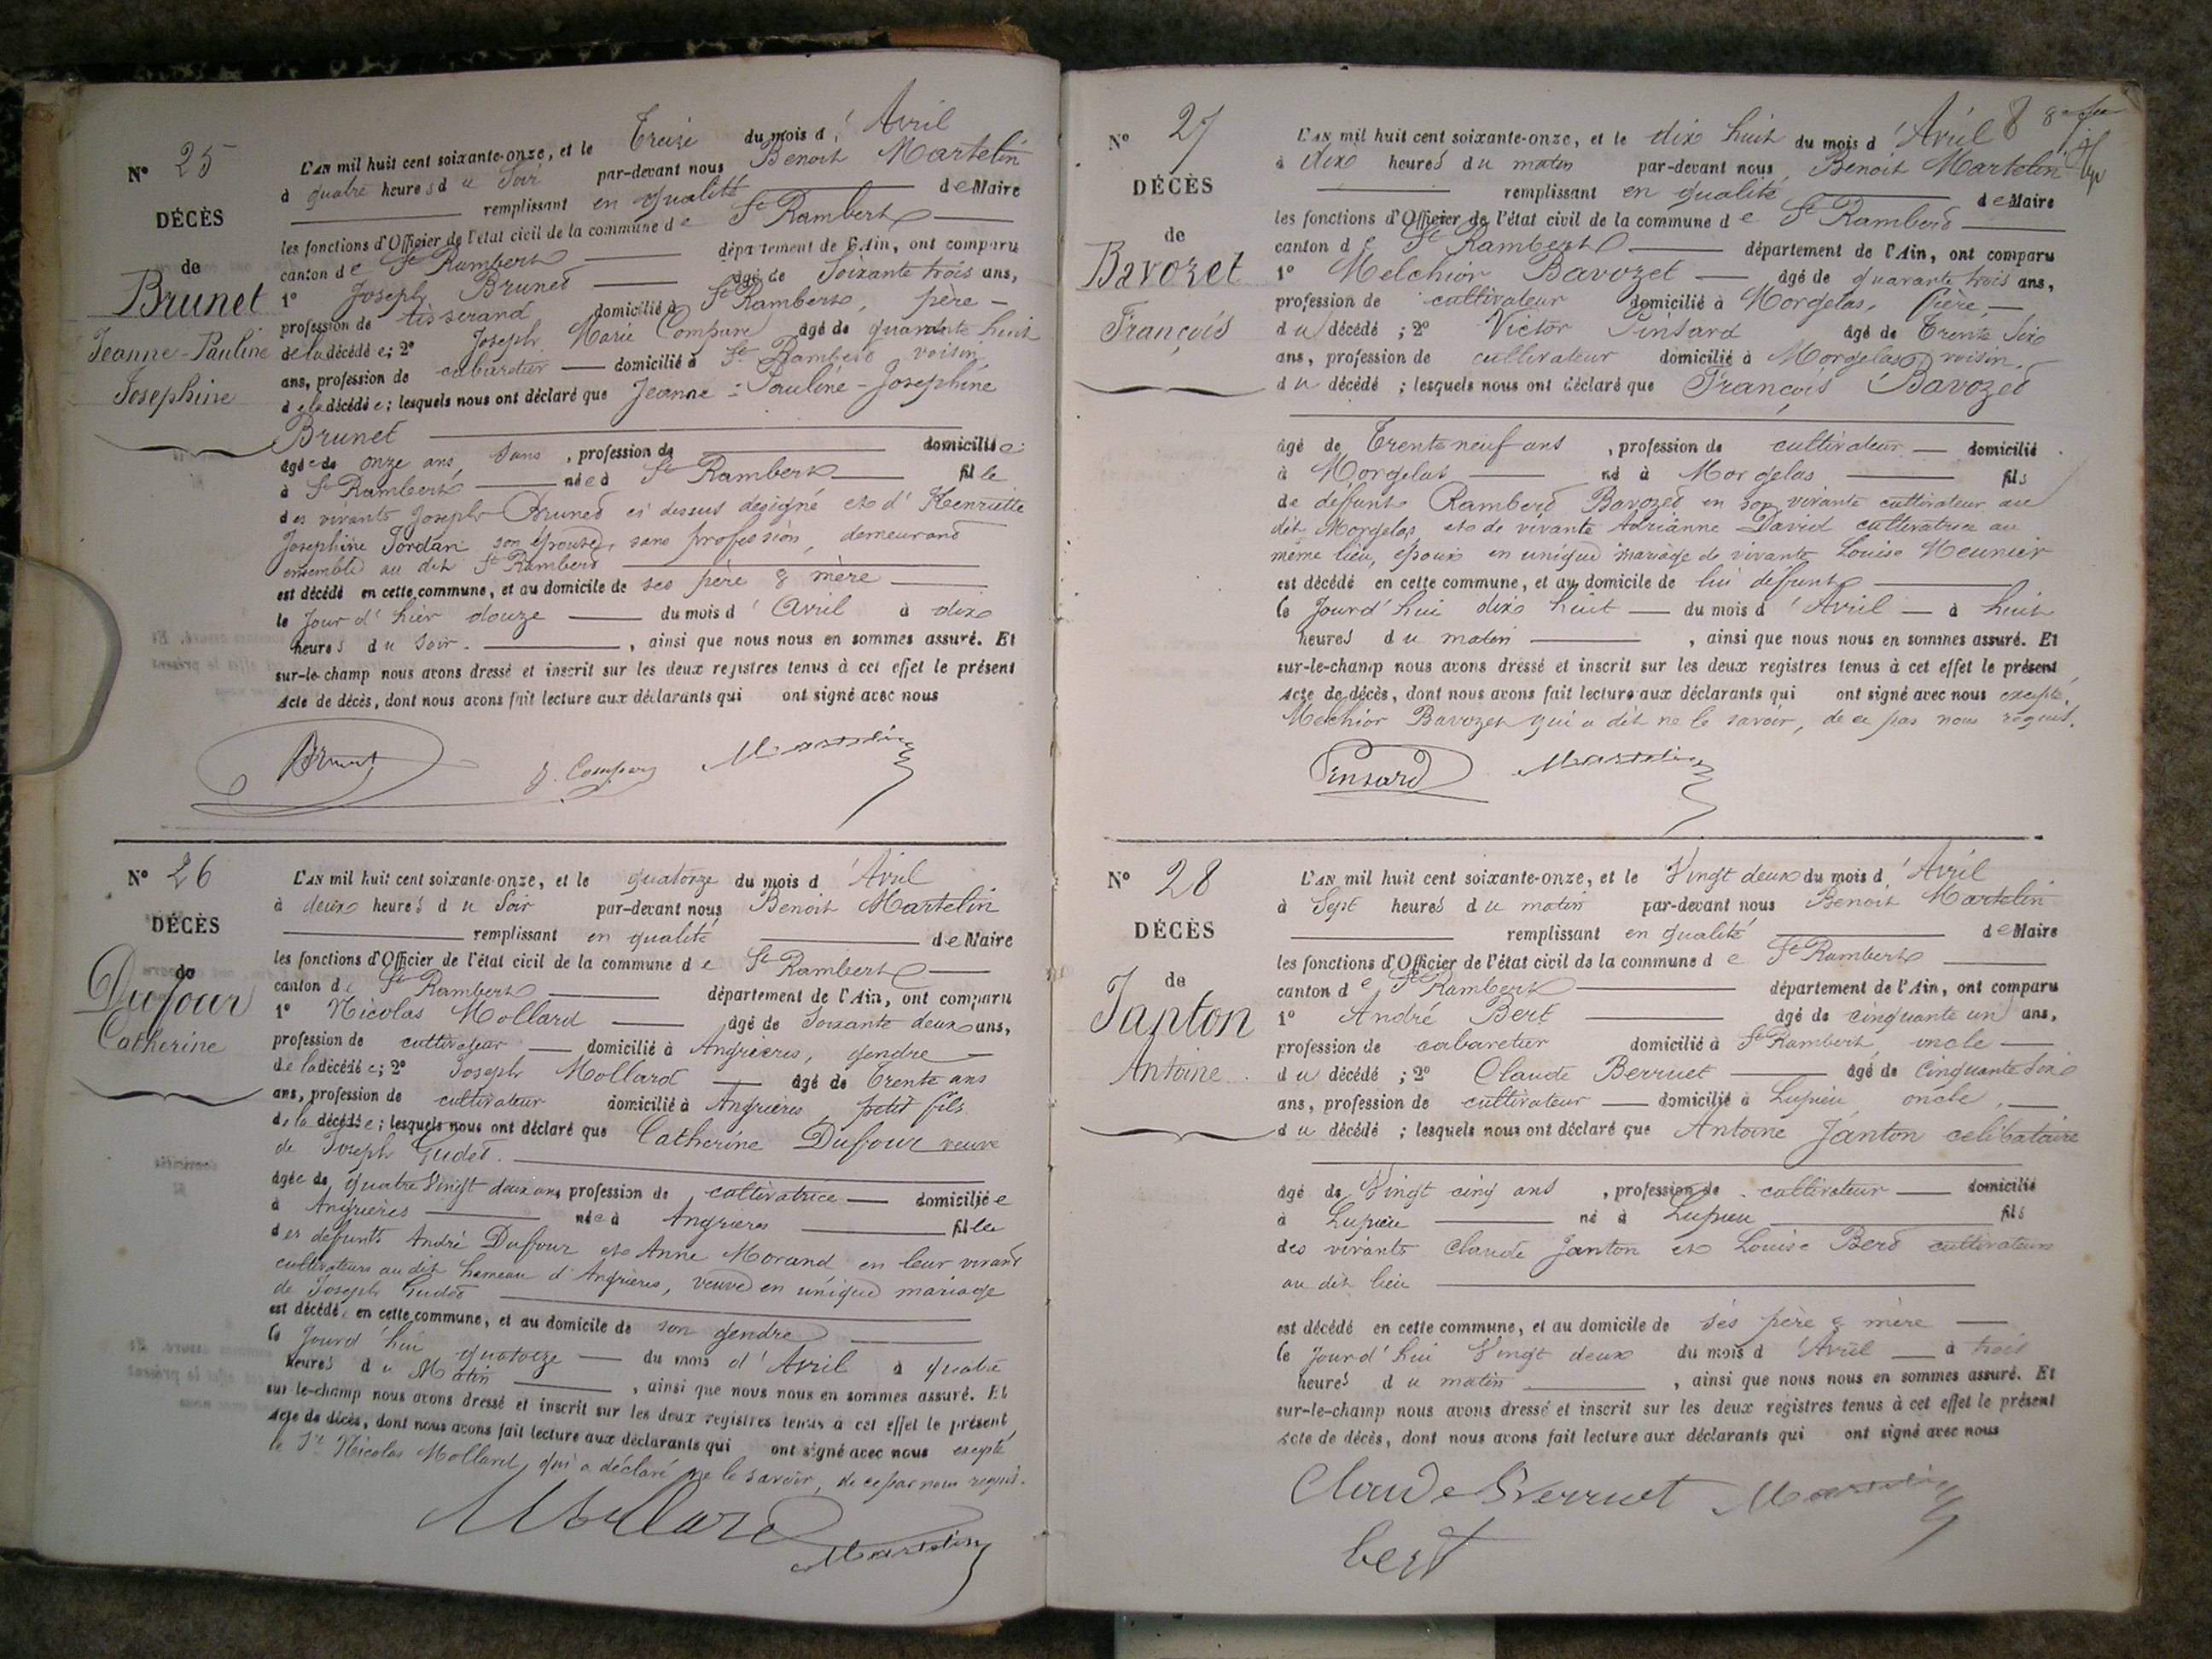 N° 25
DÉCÈS
de
Brunet
Jeanne-Pauline
Josephine
L'AN mil huit cent soixante-onze, et le Treize du mois d'Avril
à quatre heures du Soir par-devant nous Benoit Martelin
remplissant en qualité de Maire
les fonctions d'Officier de l'état civil de la commune de St Rambert
canton de St Rambert département de l'Ain, ont comparu
1° Joseph Brunet âgé de Soixante trois ans,
profession de tisserand domicilié à St Rambert, père
de la décédée; 2° Joseph Marie Compare âgé de quarante huit
ans, profession de cabaretier domicilié à St Rambert voisin
de la décédée; lesquels nous ont déclaré que Jeanne-Pauline-Josephine
Brunet
âgée de onze ans, sans, profession de domiciliée
à St Rambert née à St Rambert fille
des vivants Joseph Brunet ci dessus designé et d'Henriette
Josephine Jordan son épouse, sans profession, demeurant
ensemble au dit St Rambert
est décédé en cette commune, et au domicile de ses père & mère
le Jour d'hier douze du mois d'Avril à dix
heures du Soir. , ainsi que nous nous en sommes assuré. Et
sur-le-champ nous avons dressé et inscrit sur les deux registres tenus à cet effet le présent
Acte de décès, dont nous avons fait lecture aux déclarants qui ont signé avec nous
Brunet J. Compare Martelin
N° 26
DÉCÈS
de
Dufour
Catherine
L'AN mil huit cent soixante-onze, et le quatorze du mois d'Avril
à deux heures du Soir par-devant nous Benoit Martelin
remplissant en qualité de Maire
les fonctions d'Officier de l'état civil de la commune de St Rambert
canton de St Rambert département de l'Ain, ont comparu
1° Nicolas Mollard âgé de Soixante deux ans,
profession de cultivateur domicilié à Angrières, gendre
de la décédée; 2° Joseph Mollard âgé de Trente ans
ans, profession de cultivateur domicilié à Angrières, petit fils
de la décédée; lesquels nous ont déclaré que Catherine Dufour veuve
de Joseph Gudet.
âgée de quatre Vingt deux ans profession de cultivatrice domiciliée
à Angrières née à Angrières fille
des défunts André Dufour et Anne Morand en leur vivant
cultivateurs au dit hameau d'Angrières, veuve en unique mariage
de Joseph Gudet
est décédée en cette commune, et au domicile de son gendre
le Jourd'hui quatorze du mois d'Avril à quatre
heures du Matin , ainsi que nous nous en sommes assuré. Et
sur le-champ nous avons dressé et inscrit sur les deux registres tenus à cet effet le présent
Acte de décès, dont nous avons fait lecture aux déclarants qui ont signé avec nous excepté
le Sr Nicolas Mollard, qui a déclaré ne le savoir, de ce par nous requis.
Mollard
Martelin
8
N° 27
DÉCÈS
de
Bavozet
François
L'AN mil huit cent soixante-onze, et le dix huit du mois d'Avril
à dix heures du matin par-devant nous, Benoit Martelin
remplissant en qualité de Maire
les fonctions d'Officier de l'état civil de la commune de St Rambert
canton de St Rambert département de l'Ain, ont comparu
1° Melchior Bavozet âgé de quarante trois ans,
profession de cultivateur domicilié à Morgelas, frère,
du décédé ; 2° Victor Pinsard âgé de Trente Six
ans, profession de cultivateur domicilié à Morgelas voisin.
du décédé ; lesquels nous ont déclaré que François Bavozet
âgé de Trente neuf ans , profession de cultivateur domicilié
à Morgelas né à Morgelas fils
de défunt Rambert Bavozet en son vivant cultivateur au
dit Morgelas, et de vivante Adrianne David cultivatrice au
même lieu, époux en unique mariage de vivante Louise Meunier
est décédé en cette commune, et au domicile de lui défunt
le Jourd'hui dix huit du mois d'Avril à huit
heures du matin , ainsi que nous nous en sommes assuré. Et
sur-le-champ nous avons dressé et inscrit sur les deux registres tenus à cet effet le présent
Acte de décès, dont nous avons fait lecture aux déclarants qui ont signé avec nous excepté,
Melchior Bavozet qui a dit ne le savoir, de ce par nous requis.
Pinsard Martelin
N° 28
DÉCÈS
de
Janton
Antoine
L'AN mil huit cent soixante-onze, et le Vingt deux du mois d'Avril
à Sept heures du matin par-devant nous Benoit Martelin
remplissant en qualité de Maire
les fonctions d'Officier de l'état civil de la commune de St Rambert
canton de St Rambert département de l'Ain, ont comparu
1° André Bert âgé de cinquante un ans,
profession de cabaretier domicilié à St Rambert, oncle
du décédé ; 2° Claude Berruet âgé de Cinquante Six
ans, profession de cultivateur domicilié à Lupieu oncle,
du décédé ; lesquels nous ont déclaré que Antoine Janton celibataire
âgé de Vingt cinq ans , profession de cultivateur domicilié
à Lupieu né à Lupieu fils
des vivants Claude Janton et Louise Bert cultivateurs
au dit lieu
est décédé en cette commune, et au domicile de ses père & mère
le Jourd'hui Vingt deux du mois d'Avril à trois
heures du matin , ainsi que nous nous en sommes assuré. Et
sur-le-champ nous avons dressé et inscrit sur les deux registres tenus à cet effet le présent
Acte de décès, dont nous avons fait lecture aux déclarants qui ont signé avec nous
Claude Berruet Martelin
bert